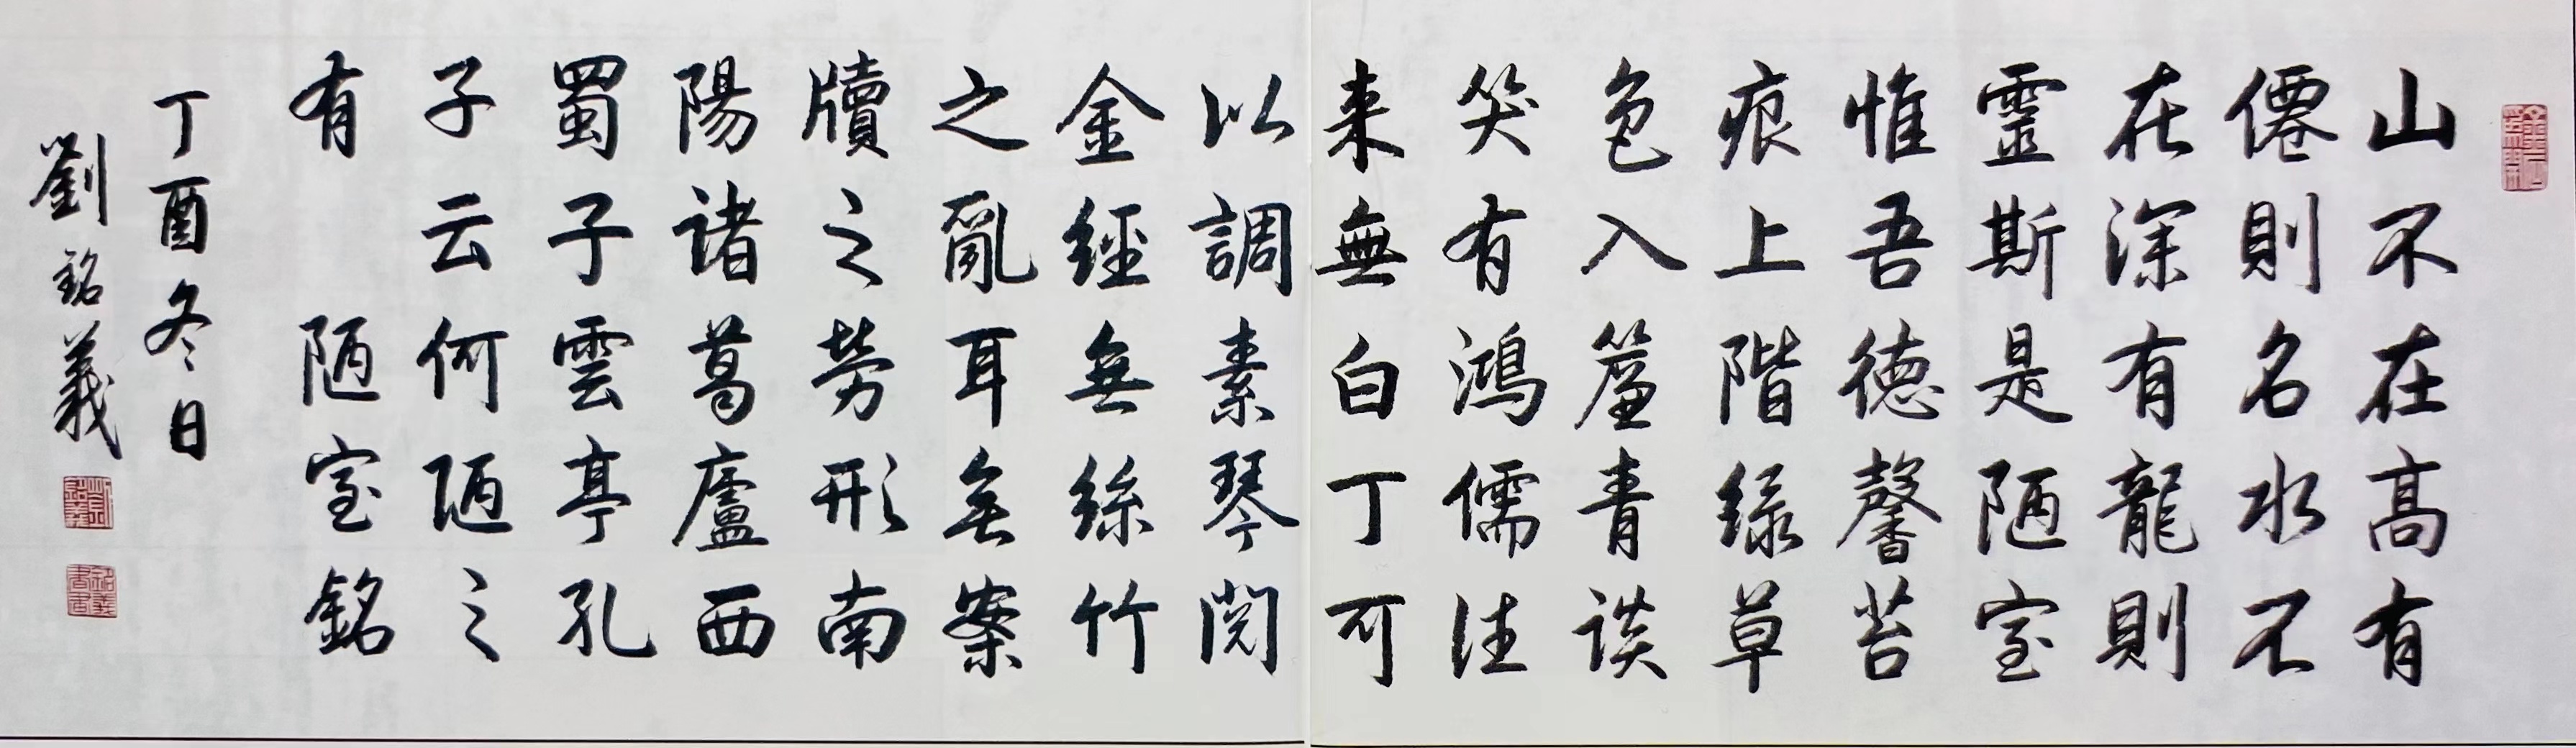 山不在高有
僊則名水不
在深有龍則
靈斯是陋室
惟吾德馨苔
痕上階綠草
色入簾青談
笑有鴻儒往
来無白丁可
以調素琴閱
金經無絲竹
之亂耳無案
牘之勞形南
陽諸葛廬西
蜀子雲亭孔
子云何陋之
有 陋室銘
丁酉冬日
劉銘義